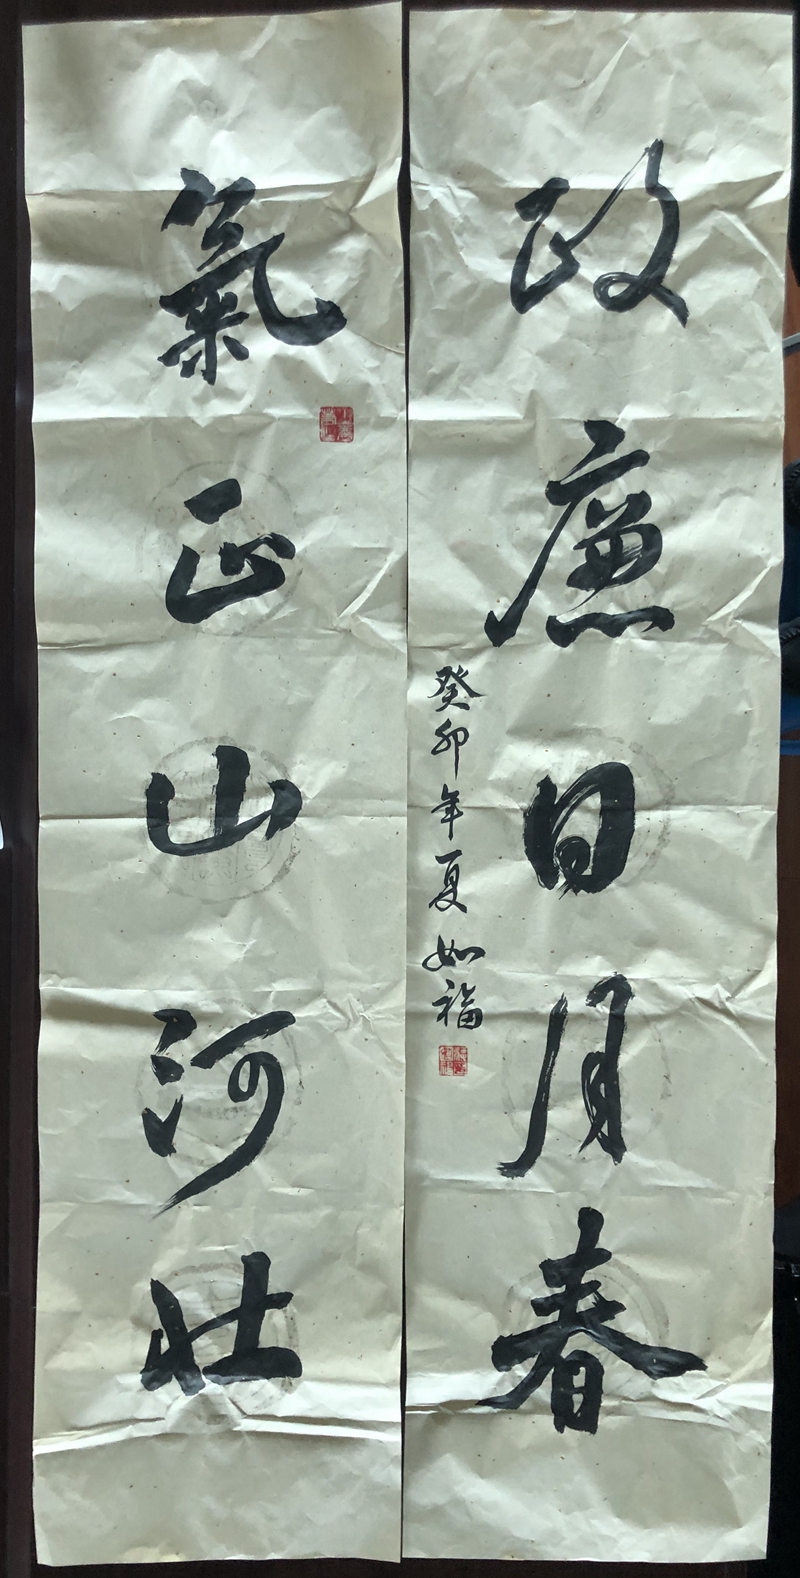 氣正山河壯
政廉日月春
癸卯年夏如福